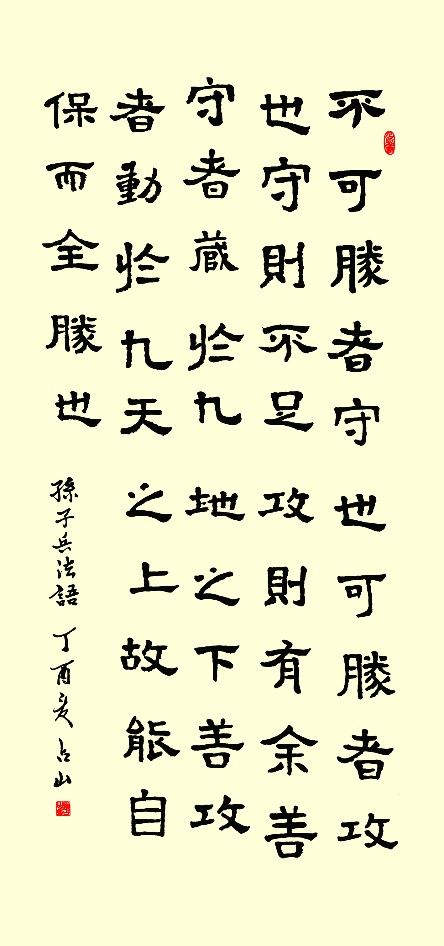 不可勝者守也可勝者攻
也守則不足攻則有余善
守者藏於九地之下善攻
者動於九天之上故能自
保而全勝也
孫子兵法語 丁酉夏 占山